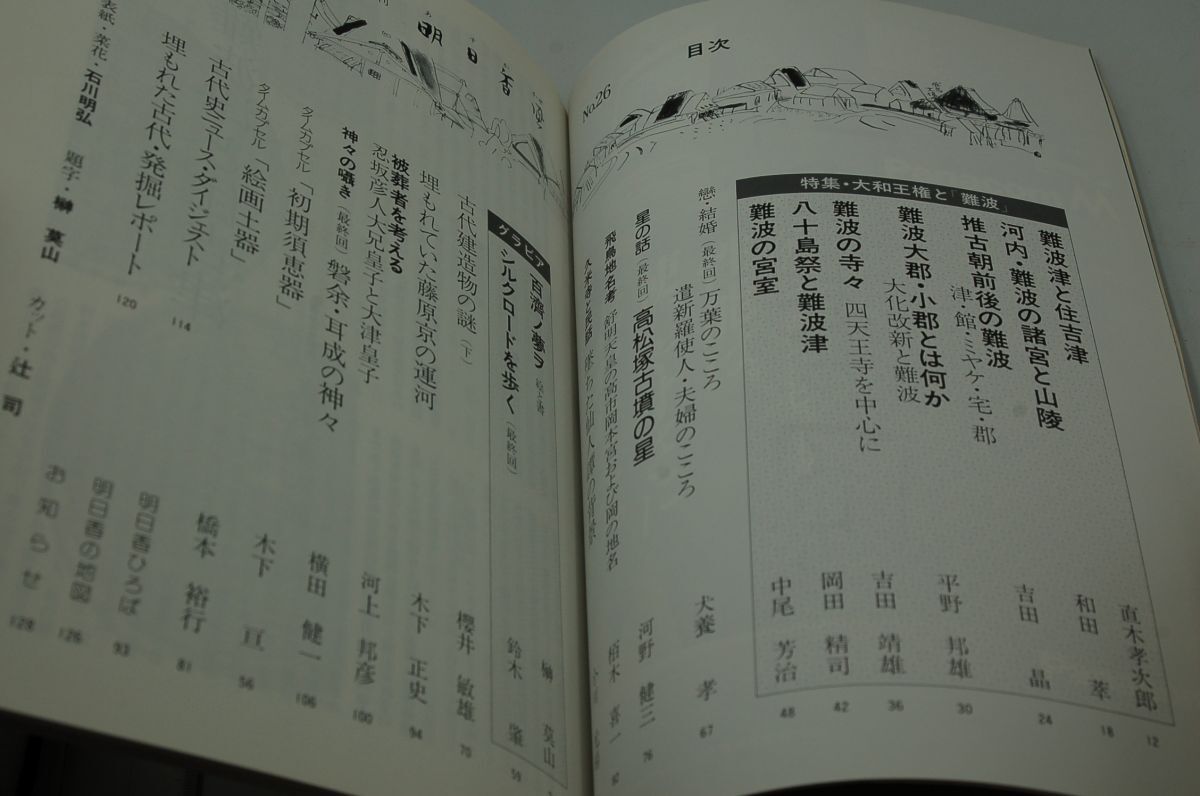 目次
No.26
特集・大和王権と「難波」
難波津と住吉津 直木孝次郎 12
河内・難波の諸宮と山陵 和田 萃 18
推古朝前後の難波 吉田 晶 24
津・館・ミヤケ・宅・郡
難波大郡・小郡とは何か 平野 邦雄 30
大化改新と難波
難波の寺々 四天王寺を中心に 吉田 靖雄 36
八十島祭と難波津 岡田 精司 42
難波の宮室 中尾 芳治 48
戀・結婚(最終回)万葉のこころ 犬養 孝 67
遣新羅使人・夫婦のこころ
星の話(最終回)高松塚古墳の星 河野 健三 76
飛鳥地名考 舒明天皇の高市岡本宮・および岡の地名 柏木 喜一 92
明日香
グラビア
百済ノ夢ヲ 絵と書 榊 莫山
シルクロードを歩く(最終回) 鈴木 肇 59
古代建造物の謎(下) 櫻井 敏雄 70
埋もれていた藤原京の運河 木下 正史 94
被葬者を考える
忍坂彦人大兄皇子と大津皇子 河上 邦彦 100
神々の囁き(最終回)磐余・耳成の神々 横田 健一 106
タイムカプセル「初期須恵器」 木下 亘 56
タイムカプセル「絵画土器」 橋本 裕行 81
古代史ニュース・ダイジェスト 114
埋もれた古代・発掘レポート 120
明日香ひろば 93
明日香の地図 126
お知らせ 129
表紙・菜花・石川明弘 題字・榊 莫山 カット・辻 司